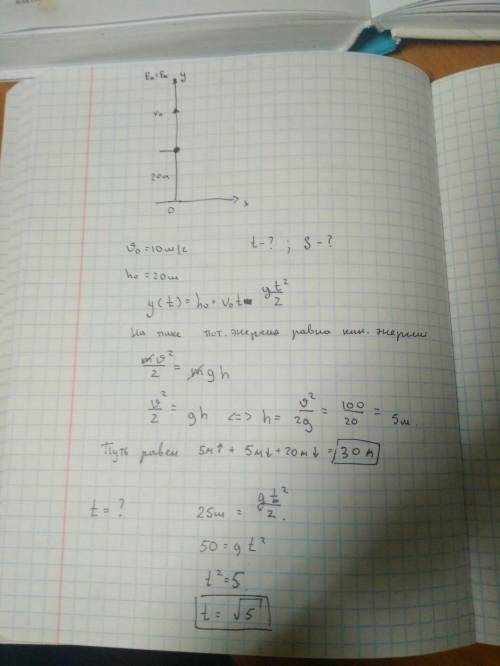 Eп = Eк y
v₀
20м
0 x
υ₀ = 10 м/с t - ? ; S - ?
h₀ = 20м
y(t) = h₀ + v₀t - gt²/2
На пике пот. энергия равна кин. энергии
mυ²/2 = mgh
υ²/2 = gh <=> h = υ²/2g = 100/20 = 5м
Путь равен 5м↑ + 5м↓ + 20м↓ = 30м
t = ? 25м = gt²/2.
50 = gt²
t² = 5
t = √5